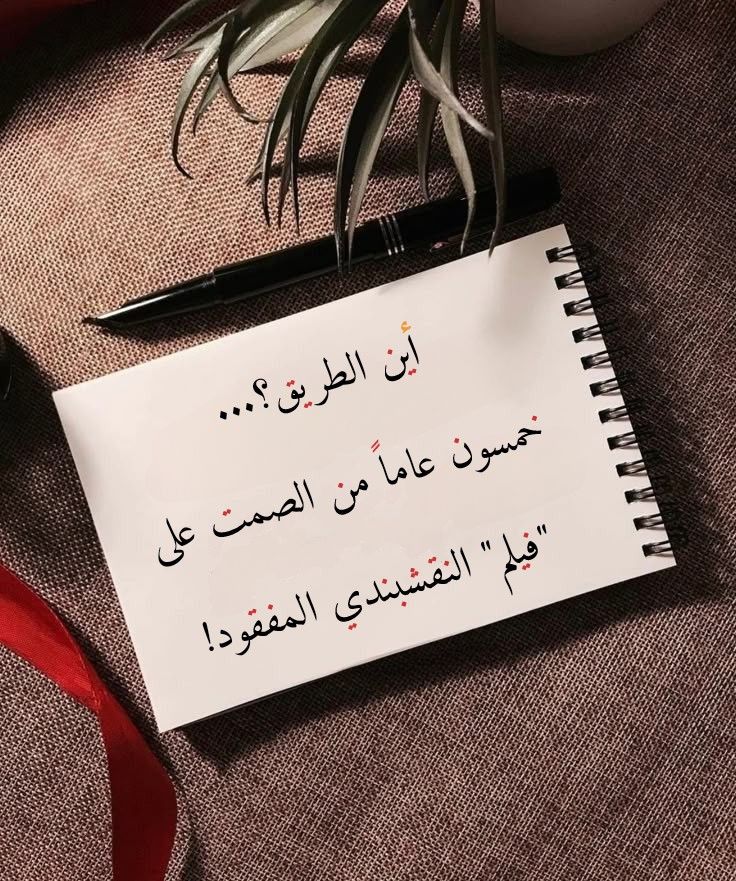 أين الطريق؟...
خمسون عاماً من الصمت على
"فيلم" النقشبندي المفقود!